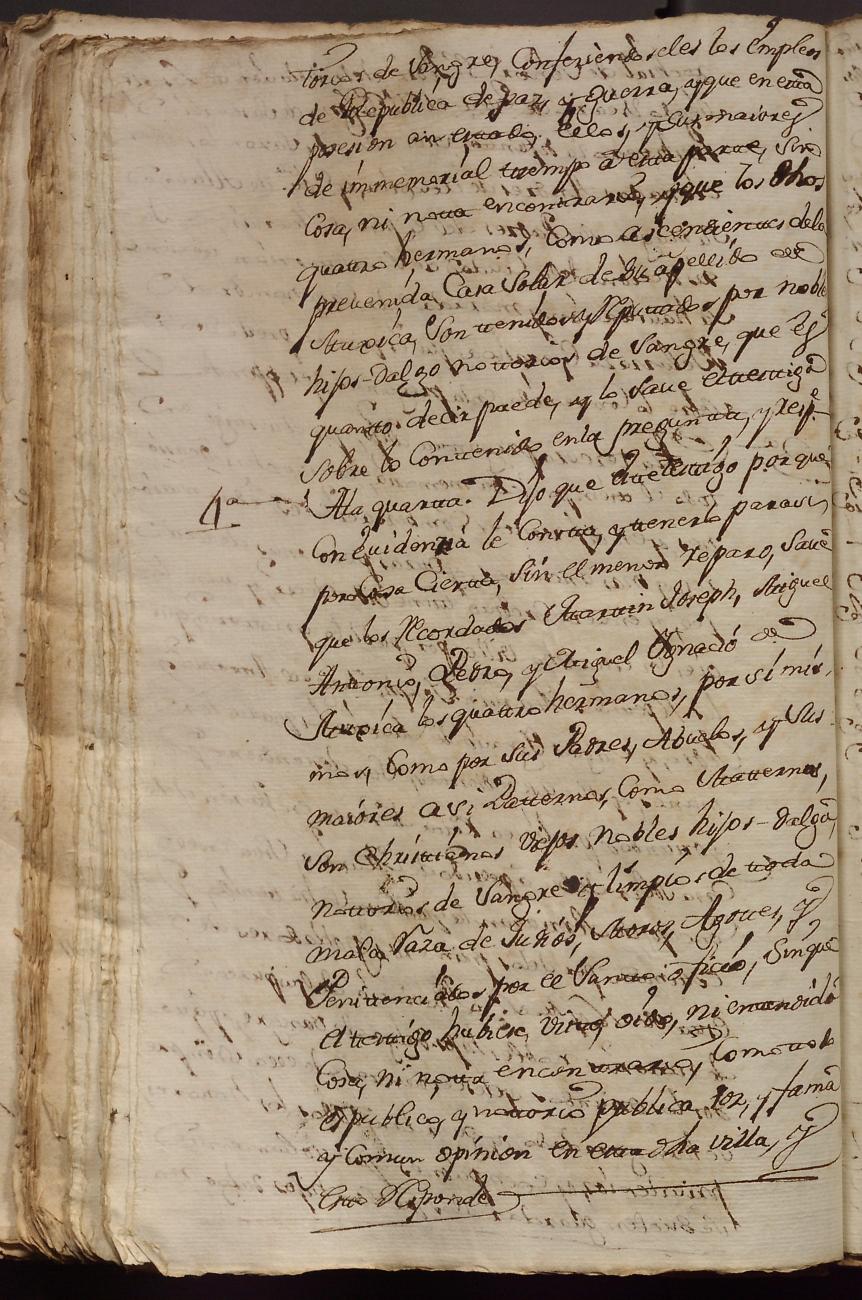 torios de sangre, Confiriendoseles los Empleos
de Republica de paz, y Guerra, y que en esta
posesion an estado ellos, y sus maiores
de immemorial tiempo a esta parte, sin
Cosa, ni nota encontrario, y que los dhos
quatro hermanos, Como ascendientes dela
prevenida Casa Solar de su apellido de
Muxica, Son tenidos, y Reputados por noble
hijos-dalgo notorios de Sangre, que es
quanto decir puede, y lo save el testigo
sobre lo Contenido enla pregunta, y resp.e
4a Ala quarta. Dijo que el testigo por que
Con Evidenzia le Consta, y tenerlo para si
por Cosa Cierta, sin el menor reparo, save
que los Recordados Martin Joseph, Miguel
Antonio, Pedro, y Miguel Ygnacio de
Muxica los quattro hermanos, por si mis-
mos, Como por sus Padres, Abuelos, y sus
maiores asi Paternos, Como Maternos,
son Christianos viejos nobles hijos-dalgo,
notorios de Sangre y limpios de toda
mala Raza de Judios, Moros, Agotes, y
Penitenciados por el Santo oficio, sin que
el testigo hubiese visto, oido, ni entendido
Cosa, ni nota encontrario, Como todo
es publico, y notorio publica voz, y fama
y Comun opinion en esta dha villa, y
esto Responde